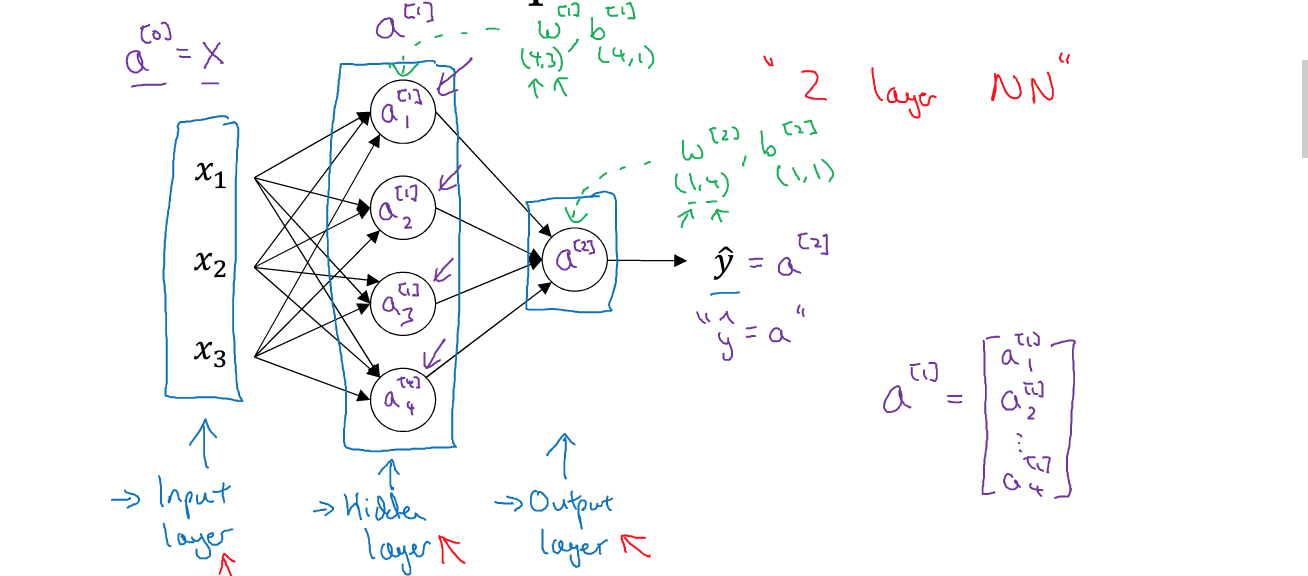 a^[1]
w^[1], b^[1]
(4,3) (4,1)
a^[0] = X
"2 layer NN"
x₁
x₂
x₃
a₁^[1]
a₂^[1]
a₃^[1]
a₄^[4]
w^[2], b^[2]
(1,4) (1,1)
a^[2]
ŷ = a^[2]
"ŷ = a"
a^[1] =
a₁^[1]
a₂^[1]
⋮
a₄^[1]
→ Input
layer
→ Hidden
layer
→ Output
layer